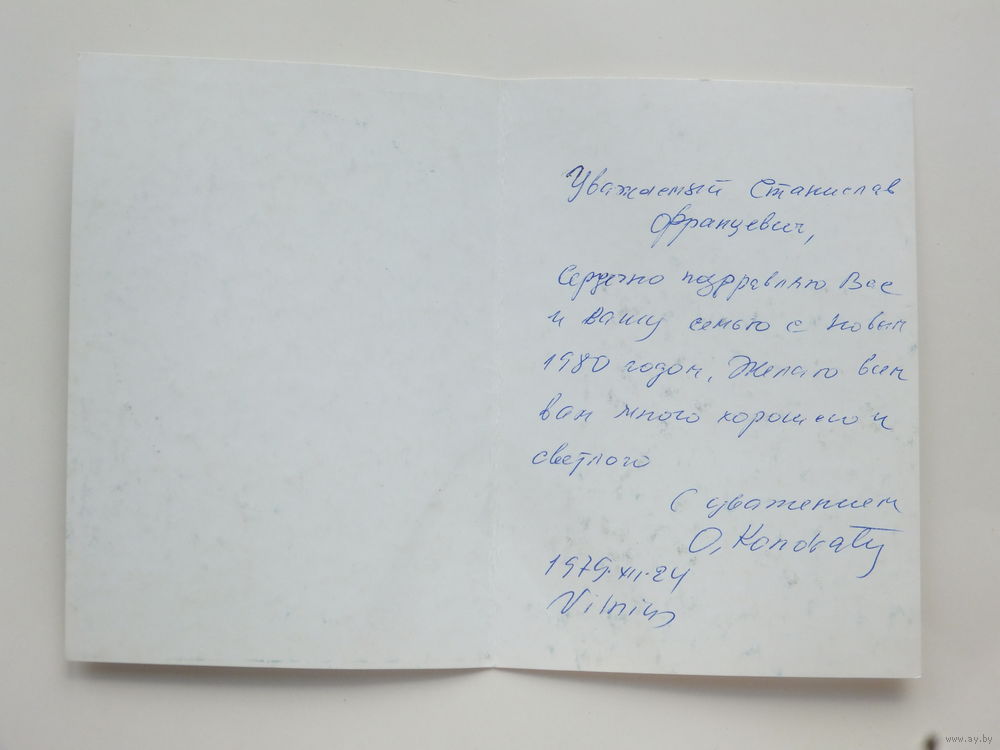 Уважаемый Станислав
Францевич,
Сердечно поздравляю Вас
и вашу семью с Новым
1980 годом, Желаю всем
вам много хорошего и
светлого
С уважением
O, Kondraty
1979.XII.24
Vilnius
www.ay.by